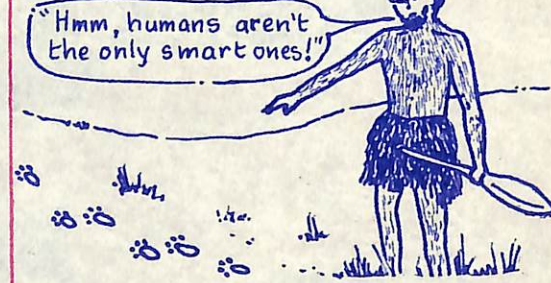 "Hmm, humans aren't
the only smart ones!"